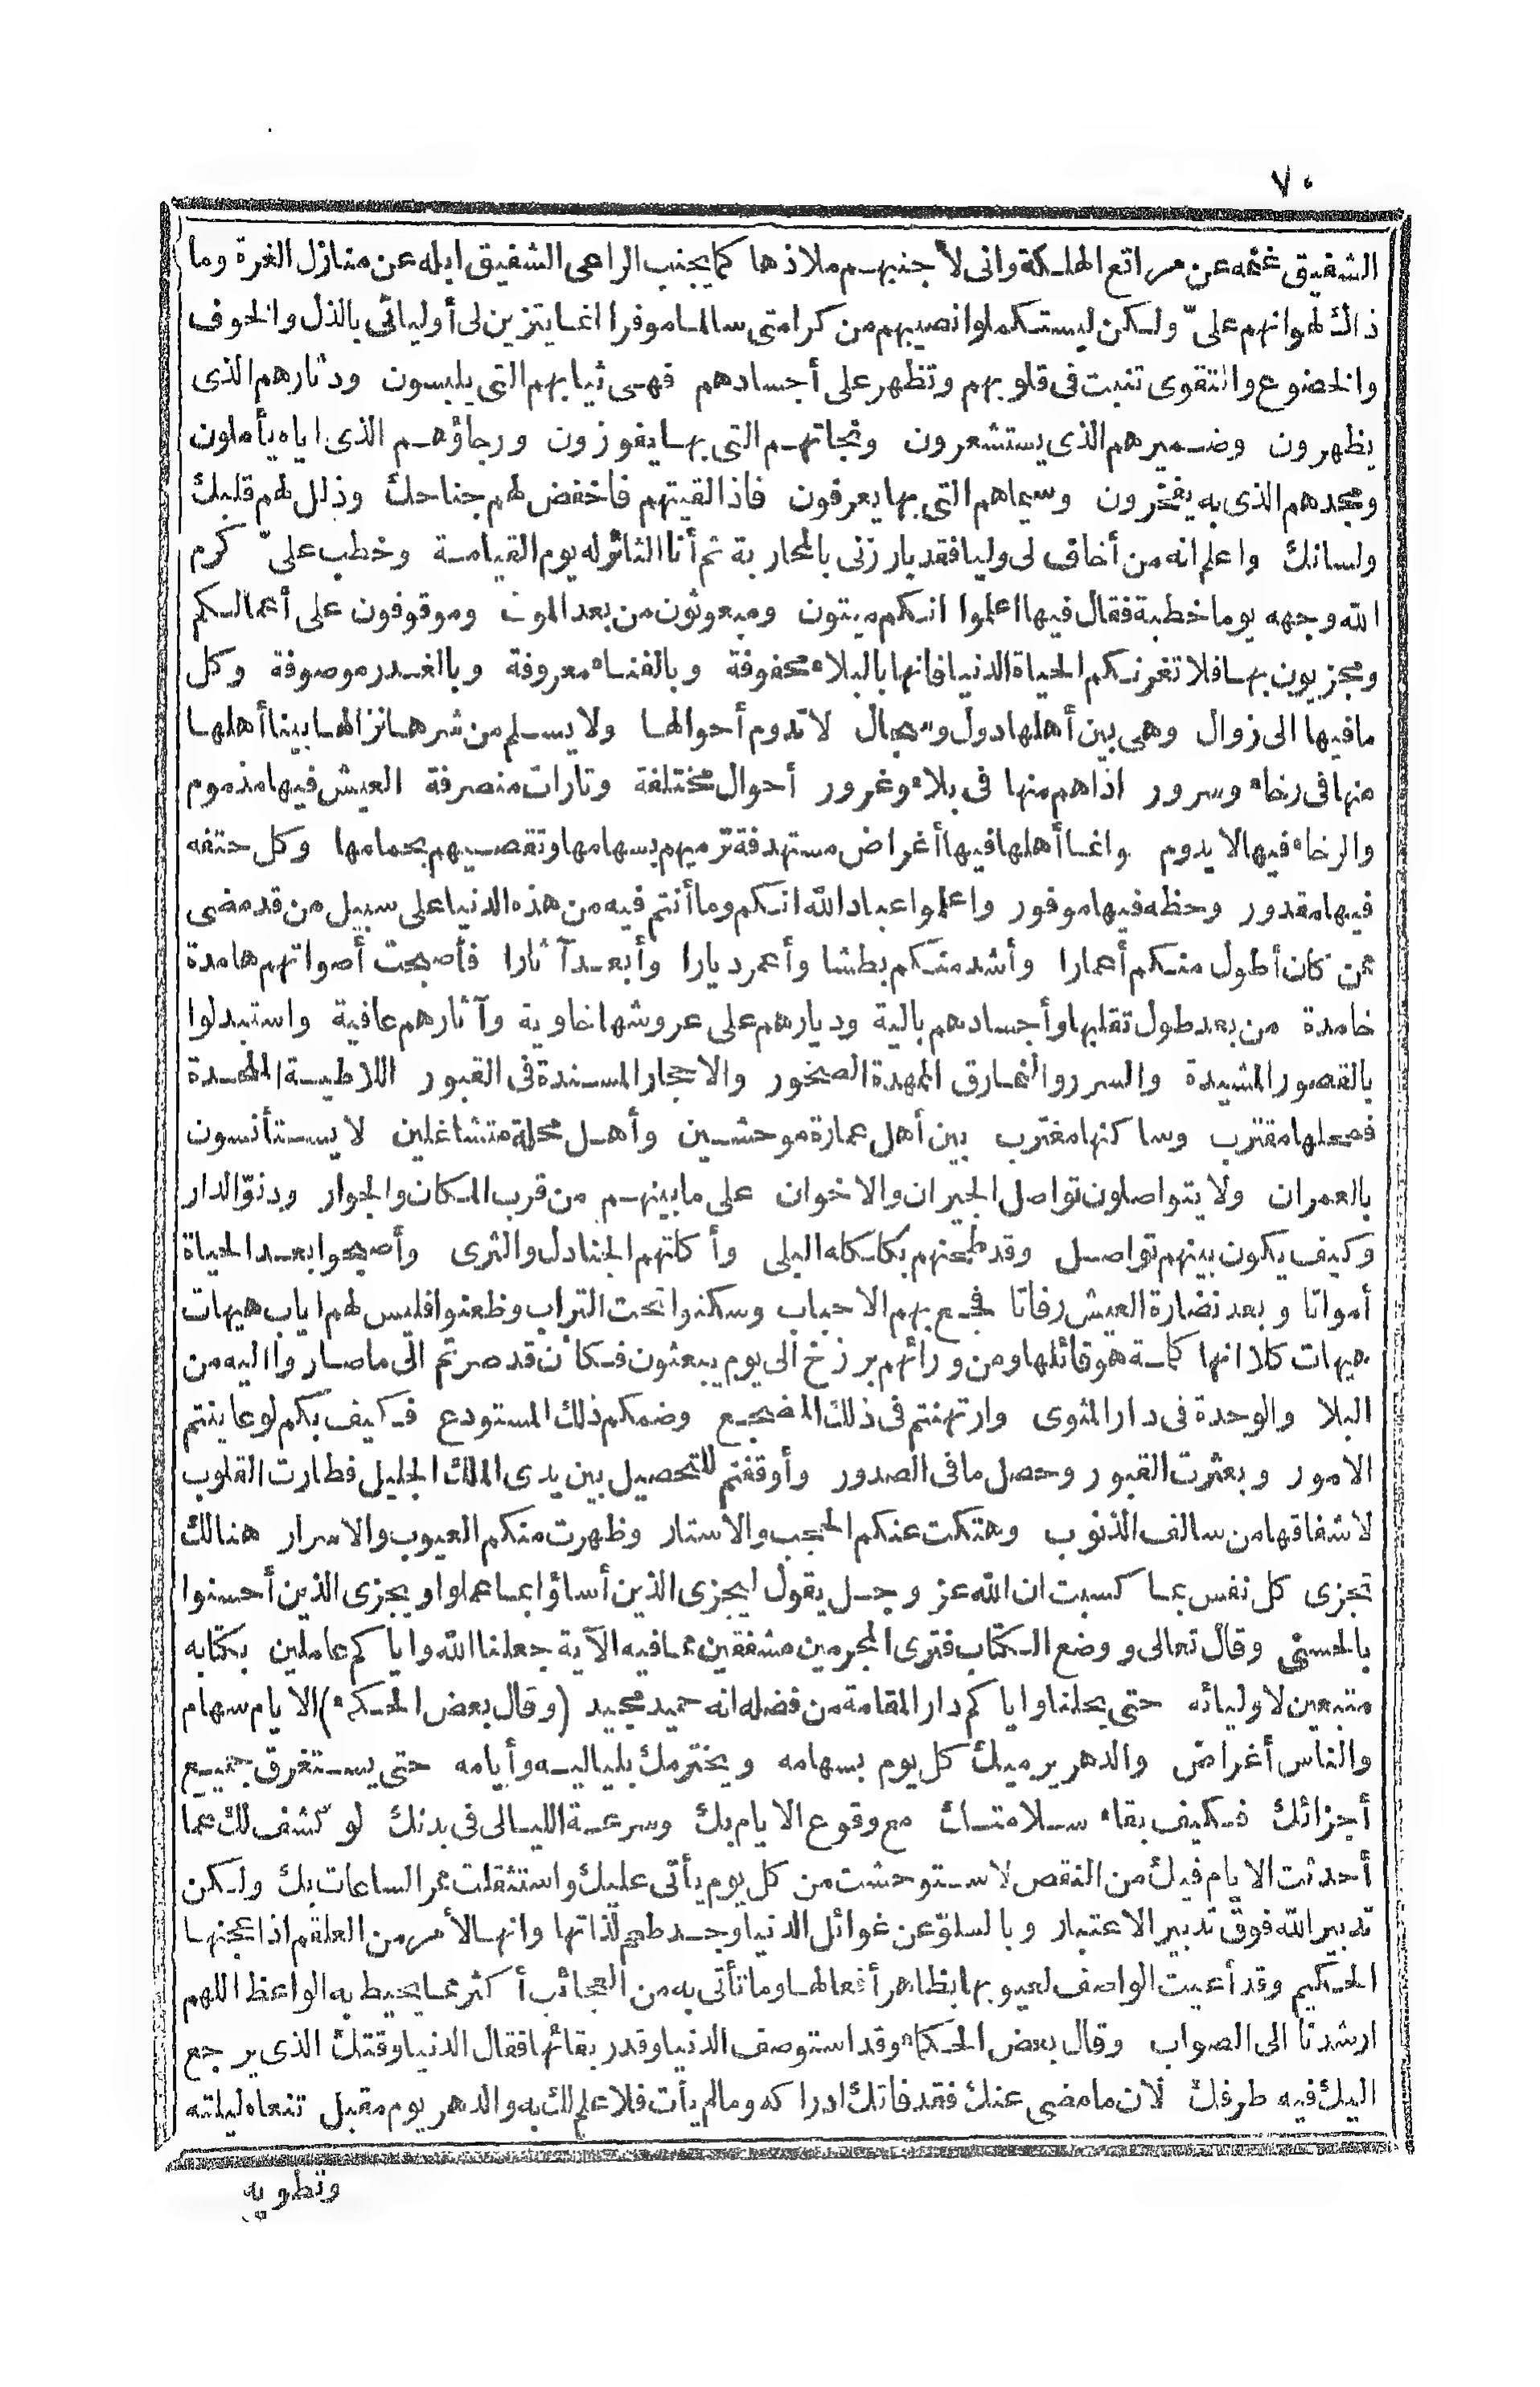 ٧٠
الشفيق غنمه عن مراتع الهلكة وانى لأجنبهم ملاذها كما يجنب الراعى الشفيق ابله عن منازل الغرة وما
ذاك لهوانهم علىّ ولكن ليستكملوا نصيبهم من كرامتى سالما موفرا انما يتزين لى أوليائى بالذل والخوف
والخضوع والتقوى تنبت فى قلوبهم وتظهر على أجسادهم فهى ثيابهم التى يلبسون ودثارهم الذى
يظهرون وضميرهم الذى يستشعرون ونجاتهم التى بها يفوزون ورجاؤهم الذى اياه يأملون
ومجدهم الذى به يفخرون وسيماهم التى بها يعرفون فاذا لقيتهم فاخفض لهم جناحك وذلل لهم قلبك
ولسانك واعلم انه من أخاف لى وليا فقد بارزنى بالمحاربة ثم أنا الثائر له يوم القيامة وخطب علىّ كرم
الله وجهه يوما خطبة فقال فيها اعلموا انكم ميتون ومبعوثون من بعد الموت وموقوفون على أعمالكم
ومجزيون بها فلا تغرنكم الحياة الدنيا فانها بالبلاء محفوفة وبالفناء معروفة وبالغدر موصوفة وكل
مافيها الى زوال وهى بين أهلها دول وسجال لا تدوم أحوالها ولا يسلم من شرها نزالها بينا أهلها
منها فى رخاء وسرور اذا هم منها فى بلاء وغرور أحوال مختلفة وتارات منصرفة العيش فيها مذموم
والرخاء فيها لا يدوم وانما أهلها فيها أغراض مستهدفة ترميهم بسهامها وتقصيهم بحمامها وكل حتفه
فيها مقدور وحظه فيها موفور واعلموا عباد الله انكم وما أنتم فيه من هذه الدنيا على سبيل من قد مضى
ممن كان أطول منكم أعمارا وأشد منكم بطشا وأعمر ديارا وأبعد آثارا فأصبحت أصواتهم هامدة
خامدة من بعد طول تقلبها وأجسادهم بالية وديارهم على عروشها خاوية وآثارهم عافية واستبدلوا
بالقصور المشيدة والسرر والنمارق الممهدة الصخور والاحجار المسندة فى القبور اللاطية الملحدة
فمحلها مقترب وساكنها مغترب بين أهل عمارة موحشين وأهل محلة متشاغلين لا يستأنسون
بالعمران ولا يتواصلون تواصل الجيران والاخوان على ما بينهم من قرب المكان والجوار ودنوّ الدار
وكيف يكون بينهم تواصل وقد طحنهم بكلكله البلى وأكلتهم الجنادل والثرى وأصبحوا بعد الحياة
أمواتا وبعد نضارة العيش رفاتا فجع بهم الاحباب وسكنوا تحت التراب وظعنوا فليس لهم اياب هيهات
هيهات كلا انها كلمة هو قائلها ومن ورائهم برزخ الى يوم يبعثون فكأن قد صرتم الى ما صاروا اليه من
البلا والوحدة فى دار المثوى وارتهنتم فى ذلك المضجع وضمكم ذلك المستودع فكيف بكم لو عاينتم
الامور وبعثرت القبور وحصل ما فى الصدور وأوقفتم للتحصيل بين يدى الملك الجليل فطارت القلوب
لاشفاقها من سالف الذنوب وهتكت عنكم الحجب والاستار وظهرت منكم العيوب والاسرار هنالك
تجزى كل نفس بما كسبت ان الله عز وجل يقول ليجزى الذين أساؤا بما عملوا ويجزى الذين أحسنوا
بالحسنى وقال تعالى ووضع الكتاب فترى المجرمين مشفقين مما فيه الآية جعلنا الله واياكم عاملين بكتابه
متبعين لاوليائه حتى يحلنا واياكم دار المقامة من فضله انه حميد مجيد (وقال بعض الحكماء) الايام سهام
والناس أغراض والدهر يرميك كل يوم بسهامه ويخترمك بلياليه وأيامه حتى يستغرق جميع
أجزائك فكيف بقاء سلامتك مع وقوع الايام بك وسرعة الليالى فى بدنك لو كشف لك عما
أحدثت الايام فيك من النقص لاستوحشت من كل يوم يأتى عليك واستثقلت ممر الساعات بك ولكن
تدبير الله فوق تدبير الاعتبار وبالسلوّ عن غوائل الدنيا وجد طعم لذاتها وانها لأمر من العلقم اذا عجنها
الحكيم وقد أعيت الواصف لعيوبها بظاهر أفعالها وما تأتى به من العجائب أكثر مما يحيط به الواعظ اللهم
ارشدنا الى الصواب وقال بعض الحكماء وقد استوصف الدنيا وقدر بقائها فقال الدنيا وقتك الذى يرجع
اليك فيه طرفك لان ما مضى عنك فقد فاتك ادراكه وما لم يأت فلا علم لك به والدهر يوم مقبل تنعاه ليلته
وتطويه